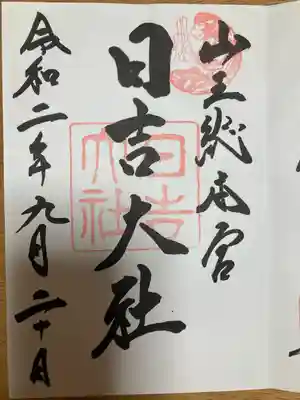 山王総本宮
日吉大社
令和二年九月二十日
日吉大社